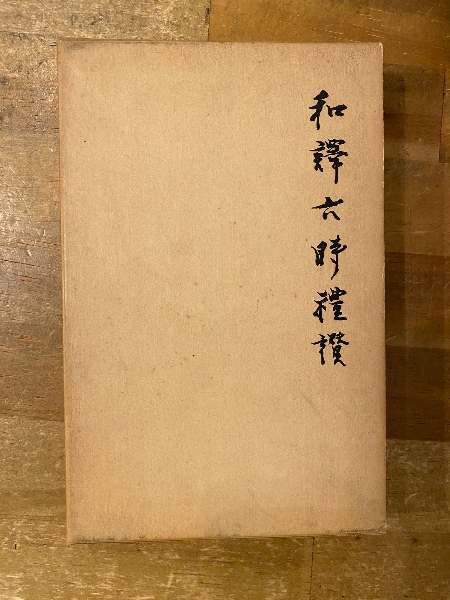 和譯六時禮讚